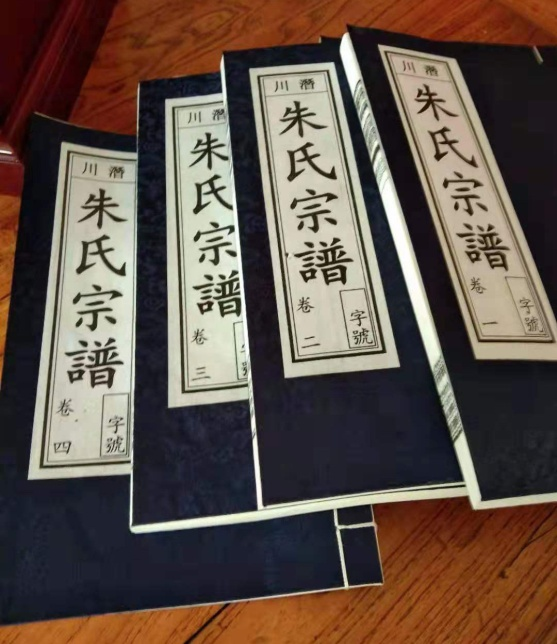 潛川
朱氏宗譜
卷一
字號
潛川
朱氏宗譜
卷二
字號
潛川
朱氏宗譜
卷三
潛川
朱氏宗譜
卷四
字號